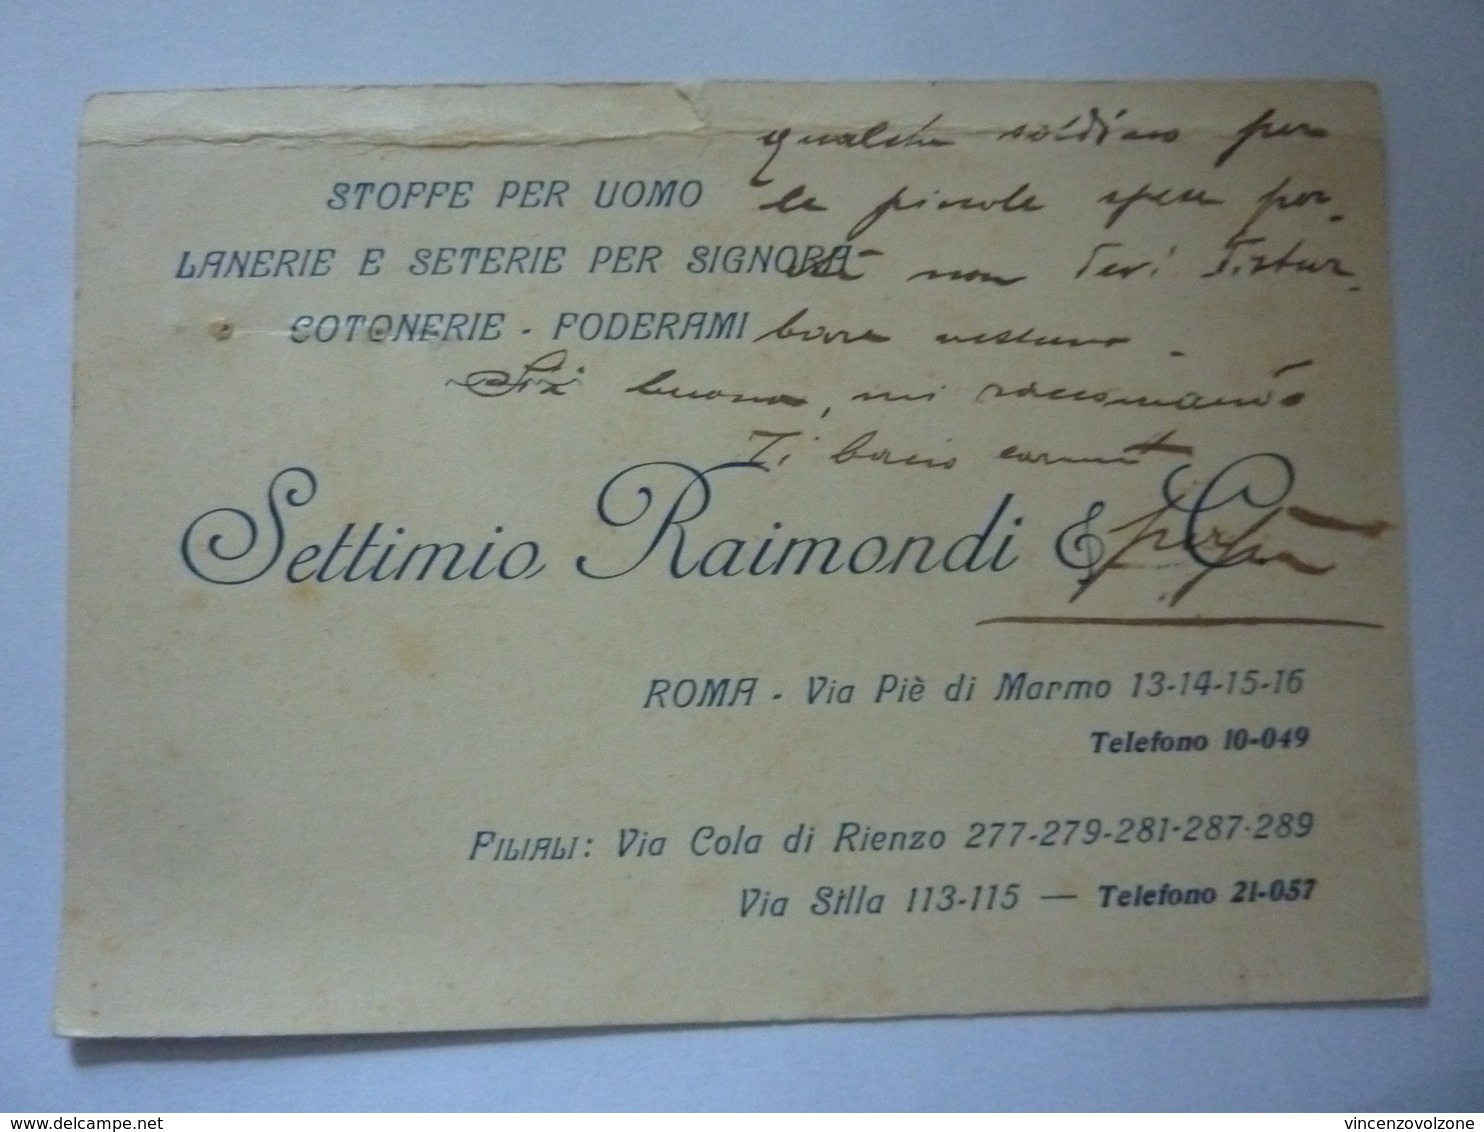 qualche soldino per
le piccole spese per-
non devi distur-
bare nessuno.
Sii buona, mi raccomando
Ti bacio
STOFFE PER UOMO
LANERIE E SETERIE PER SIGNORA
COTONERIE - FODERAMI
Settimio Raimondi & C.
ROMA - Via Piè di Marmo 13-14-15-16
Telefono 10-049
FILIALI: Via Cola di Rienzo 277-279-281-287-289
Via Silla 113-115 — Telefono 21-057
delcampe.net
vincenzovolzone